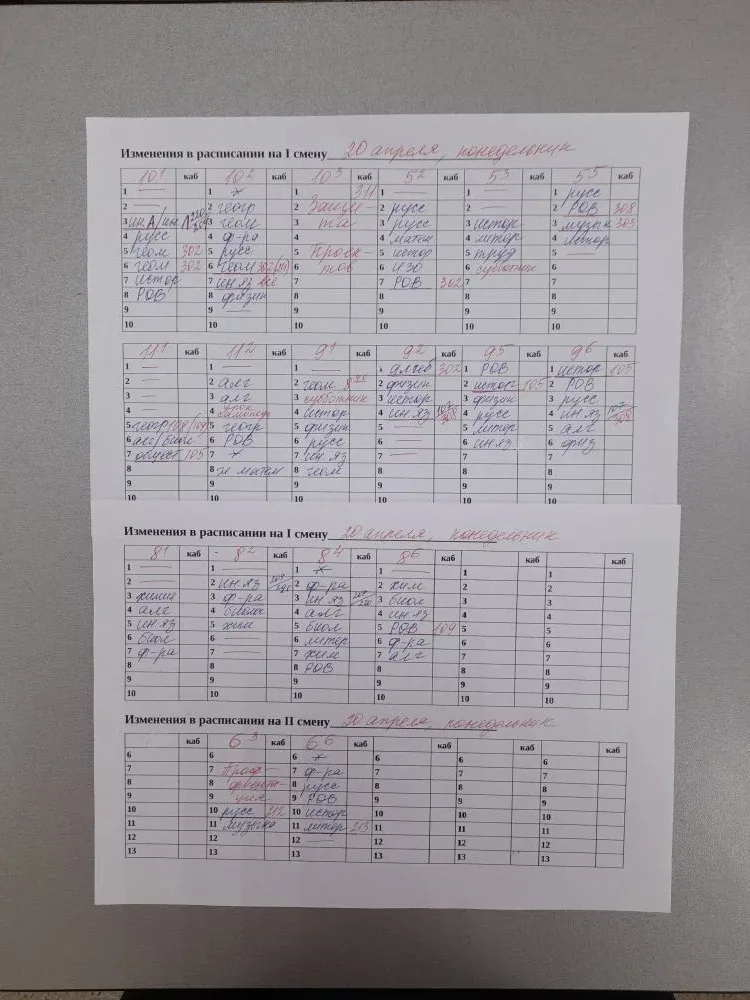 Изменения в расписании на I смену 20 апреля, понедельник
10¹ каб 10² каб 10³ каб 5² каб 5³ каб 5⁵ каб
1 — 1 * 1 311 1 — 1 — 1 русс
2 — 2 геогр 2 Защи- 2 русс 2 — 2 РОВ 308
3 ин.А/ин.Л 3 геом 3 та 3 русс 3 истор 3 музык 303
4 русс 4 ф-ра 4 4 матем 4 литер 4 истор
5 геом 302 5 русс 5 Проек- 5 истор 5 труд 5
6 геом 302 6 геом 302 6 тов 6 ИЗО 6 субботник 6
7 истор 7 ин.яз все 7 7 РОВ 302 7 7
8 РОВ 8 физик 8 8 8 8
9 9 — 9 9 9 9
10 10 10 10 10 10
11¹ каб 11² каб 9¹ каб 9² каб 9⁵ каб 9⁶ каб
1 — 1 — 1 — 1 алгеб 302 1 РОВ 1 истор 105
2 — 2 алг 2 геом 8⁴⁵ 2 физик 2 истор 105 2 РОВ
3 — 3 алг 3 субботник 3 истор 3 физик 3 русс
4 — 4 урок 4 истор 4 ин.яз 308 4 русс 4 ин.яз 308
5 геогр 108/109 5 геогр 5 физик 5 — 5 литер 5 алг
6 алг/биол 6 РОВ 6 русс 6 — 6 ин.яз 6 физ
7 общест 105 7 * 7 ин.яз 7 — 7 7
8 8 эк матем 8 геом 8 8 8
9 9 9 9 9 9
10 10 10 10 10 10
Изменения в расписании на I смену 20 апреля, понедельник
8¹ каб 8² каб 8⁴ каб 8⁶ каб каб каб
1 — 1 — 1 * 1 — 1 1
2 — 2 ин.яз 2 ф-ра 2 хим 2 2
3 химия 3 ф-ра 3 ин.яз 3 биол 3 3
4 алг 4 биолог 4 алг 4 ин.яз 4 4
5 ин.яз 5 хими 5 биол 5 РОВ 109 5 5
6 биол 6 — 6 литер 6 ф-ра 6 6
7 ф-ра 7 — 7 хим 7 алг 7 7
8 8 8 РОВ 8 8 8
9 9 9 9 9 9
10 10 10 10 10 10
Изменения в расписании на II смену 20 апреля, понедельник
каб 6³ каб 6⁶ каб каб каб каб
6 6 6 * 6 6 6
7 7 Проф- 7 ф-ра 7 7 7
8 8 ориента- 8 русс 8 8 8
9 9 ция 9 РОВ 9 9 9
10 10 русс 212 10 истор 10 10 10
11 11 музыка 11 литер 213 11 11 11
12 12 12 — 12 12 12
13 13 13 13 13 13